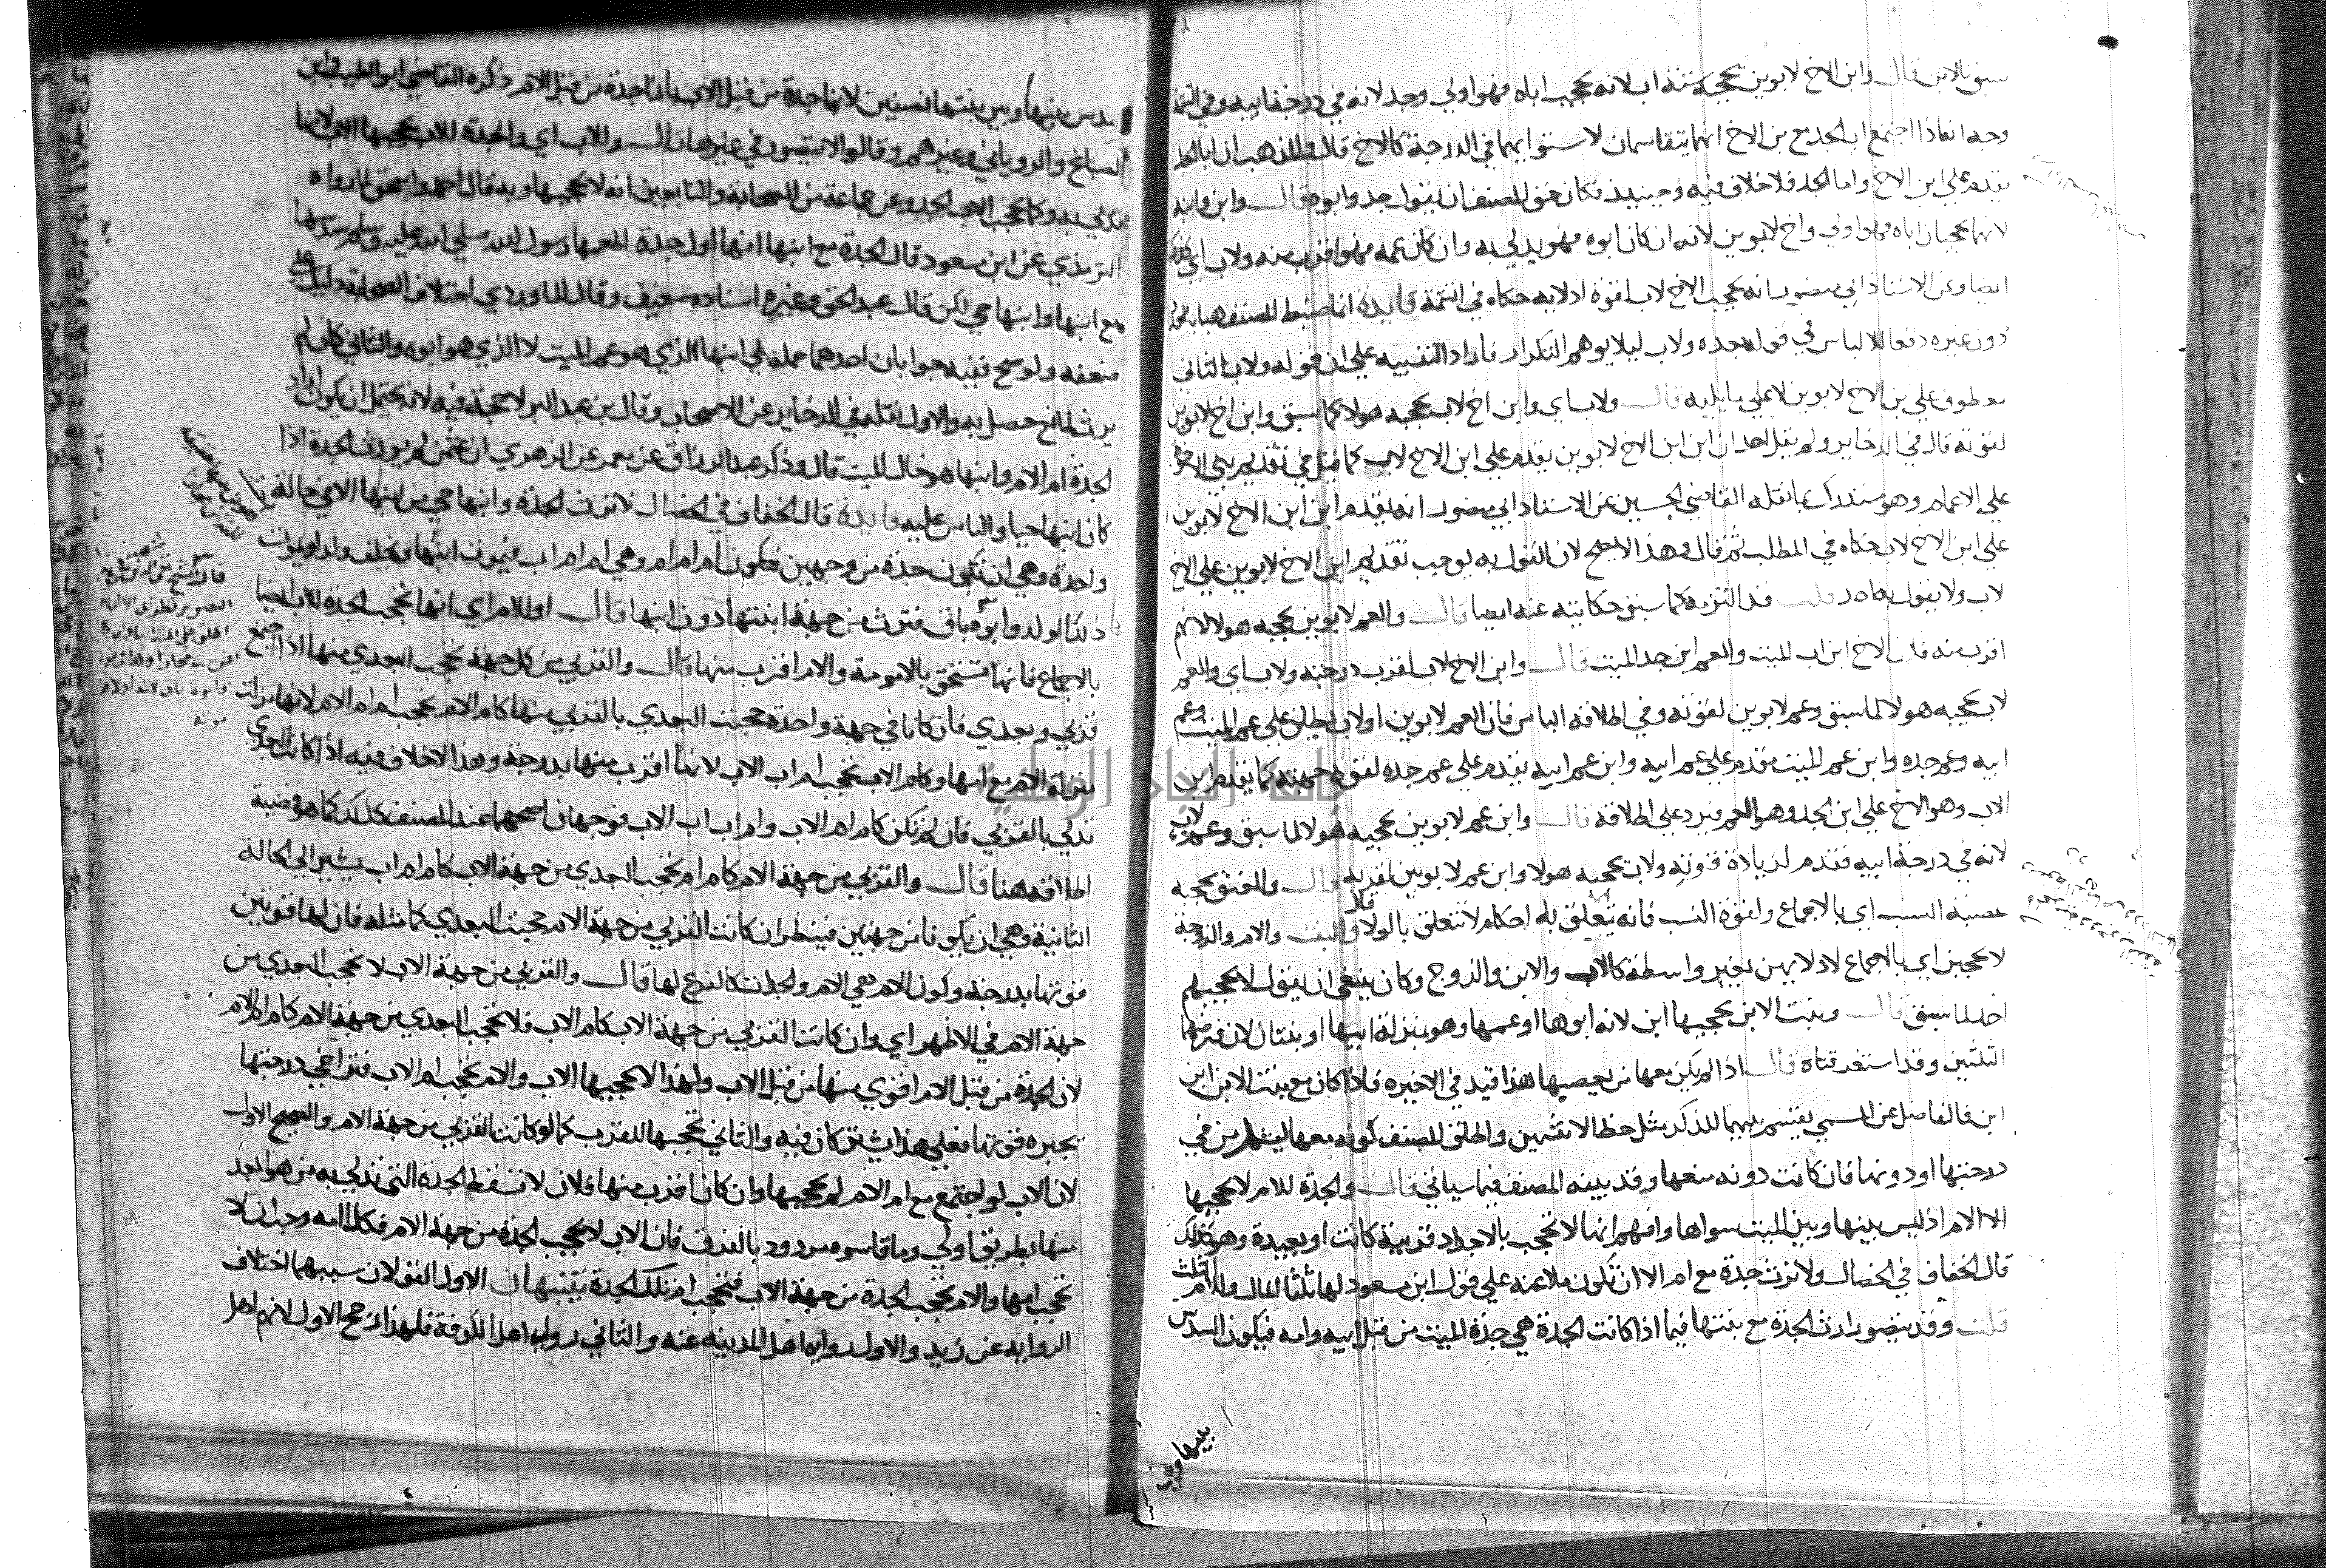 سبق بالابن قال وابن الاخ لابوين يحجبه ستة اب لانه يحجب اباه فهو اولي وجد لانه في درجة ابيه وفي التتمة
وجه انه اذا اجتمع اب الجد مع بن الاخ انهما يتقاسمان لاستوايهما في الدرجة كالاخ قال والمذهب ان ابا الجد
يقدم علي ابن الاخ واما الجد فلا خلاف فيه وحينيذ فكان حق المصنف ان يقول جد وابوه قال وابن وابنه
لانهما يحجبان اباه فهو اولي واخ لابوين لانه ان كان ابوه فهو يدلي به وان كان عمه فهو اقرب منه ولاب اي
ايضا وعن الاستاذ ابي منصور انه يحجب الاخ لاب لقوة ادلايه حكاه في التتمة فايدة انما ضبط المصنف هنا
دون غيره دفعا للالباس في قوله بعده ولاب ليلا يوهم التكرار فاراد التنبيه علي ان قوله ولاب الثاني
معطوف علي بن الاخ لابوين لا علي ما يليه قال ولاب اي وابن اخ لاب يحجبه هولا لما سبق وابن اخ لابوين
لقوته قال في الدخاير ولم يقل احد ان ابن ابن الاخ لابوين يقدم علي ابن الاخ لاب كما قيل في تقديم بني الاخوة
علي الاعمام وهو مستدرك بما نقله القاضي الحسين عن الاستاذ ابي منصور انه يقدم ابن ابن الاخ لابوين
علي ابن الاخ لاب حكاه في المطلب ثم قال وهذا لا يصح لان القول به يوجب تقديم ابن الاخ لابوين علي الاخ
لاب ولا يقول به احد قلت قد التزمه كما سبق حكايته عنه ايضا قال والعم لابوين يحجبه هولا لانهم
اقرب منه فان الاخ ابن اب الميت والعم ابن جد الميت قال وابن الاخ لاب لقرب درجته ولاب اي والعم
لاب يحجبه هولا لما سبق وعم لابوين لقوته وفي اطلاقه الباس فان العم لابوين او لاب يطلق علي عم الميت وعم
ابيه وعم جده وابن عم الميت مقدم علي عم ابيه وابن عم ابيه يقدم علي عم جده لقوة جهته كما يقدم ابن
الاب وهو الاخ علي ابن الجد وهو العم فيرد علي اطلاقه قال وابن عم لابوين يحجبه هولا لما سبق وعم لاب
لانه في درجة ابيه فقدم لزيادة قوته ولاب يحجبه هولا وابن عم لابوين لقربه قال والمعتق يحجبه
عصبة النسب اي بالاجماع ولقوة النسب فانه تعلق به احكام لا تتعلق بالولا قال والبنت والام والزوجة
لا يحجبن اي بالاجماع لادلايهن بغير واسطة كالاب والابن والزوج وكان ينبغي ان يقول لا يحجبهم
احد لما سبق قال وبنت الابن يحجبها ابن لانه ابوها او عمها وهو بمنزلة ابيها او بنتان لان فرضهما
الثلثين وقد استغرقتاه قال اذا لم يكن معها من يعصبها هذا قيد في الاخيره فاذا كان مع بنت الابن ابن
ابن فالفاضل عن المسمي يقتسم بينهما للذكر مثل حظ الانثيين واطلق المصنف كونه معها ليشمل من في
درجتها او دونها فان كانت دونه منعها وقد بينه المصنف فيما سياتي قال والجدة للام لا يحجبها
الا الام اذ ليس بينها وبين الميت سواها وافهم انها لا تحجب بالاجداد قريبة كانت او بعيدة وهو كذلك
قال الخفاف في الخصال ولا ترث جدة مع ام الا ان تكون ملاعنه علي قول ابن مسعود لها ثلثا المال وللام الثلث
قلت وقد يتصور ارث الجدة مع بنتها فيما اذا كانت الجدة هي جدة الميت من قبل ابيه وامه فيكون السدس
بينها وبين
بينها وبين بنتها نصفين لانها جدة من قبل الاب بانها جدة من قبل الام ذكره القاضي ابو الطيب وابن
الصباغ والروياني وغيرهم وقالوا لا يتصور في غيرها قال وللاب اي والجدة للاب يحجبها الاب لانها
تدلي به وكما يحجب الاب الجد وعن جماعة من الصحابة والتابعين انه لا يحجبها وبه قال احمد واسحق لما رواه
الترمذي عن ابن مسعود قال الجدة مع ابنها انها اول جدة اطعمها رسول الله صلي الله عليه وسلم سدسها
مع ابنها وابنها حي لكن قال عبد الحق وغيره اسناده ضعيف وقال الماوردي اختلاف الصحابة دليل علي
ضعفه ولو صح ففيه جوابان احدهما حمله علي ابنها الذي هو عم الميت لا الذي هو ابوه والثاني كان لم
يرث لمانع حصل به والاول نقله في الدخاير عن الاصحاب وقال بن عبد البر لا حجة فيه لانه يحتمل ان يكون اراد
الجدة ام الام وابنها هو خال الميت قال وذكر عبد الرزاق عن معمر عن الزهري ان عثمن لم يورث الجدة اذا
كان ابنها حيا والناس عليه فايدة قال الخفاف في الخصال لا ترث الجدة وابنها حي من ابنها الا في حالة
واحدة وهي ان تكون جدة من وجهين فتكون ام ام ام وهي ام ام اب فيموت ابنتها ويخلف ولدا ويموت
ذلك الولد وابوه باق فترث من جهة ابنتها دون ابنها قال او للام اي انها تحجب الجدة للاب ايضا
بالاجماع فانها تستحق بالامومة والام اقرب منها قال والقربي من كل جهة تحجب البعدي منها اذا اجتمع
قربي وبعدي فان كانا في جهة واحدة حجبت البعدي بالقربي منها كام الام تحجب ام ام الام لانها نزلت
منزلة الام مع امها وكام الاب تحجب ام اب الاب لانها اقرب منها بدرجة وهذا لا خلاف فيه اذا كانت البعدي
تدلي بالقربي فان لم تكن كام ام الاب وام اب اب الاب فوجهان اصحهما عند المصنف كذلك كما هو قضية
اطلاقه هنا قال والقربي من جهة الام كام ام تحجب البعدي من جهة الاب كام ام اب يشير الي الحالة
الثانية وهي ان يكونا من جهتين فينظر ان كانت القربي من جهة الام حجبت البعدي كما مثله فان لها قوتين
قوتها بدرجته وكون الام هي الام والجدات كالفرع لها قال والقربي من جهة الاب لا تحجب البعدي من
جهة الام في الاظهر اي وان كانت القربي من جهة الاب كام الاب فلا تحجب البعدي من جهة الام كام ام الام
لان الجدة من قبل الام اقوي منها من قبل الاب ولهذا لا يحجبها الاب والام تحجب ام الاب فتراخي درجتها
تجبره قوتها فعلي هذا يشتركان فيه والثاني تحجبها للقرب كما لو كانت القربي من جهة الام والصحيح الاول
لان الاب لو اجتمع مع ام الام لم يحجبها وان كان اقرب منها فلان لا تسقط الجدة التي تدلي به من هو ابعد
منها بطريق اولي وما قاسوه مردود بالفرق فان الاب لا يحجب الجدة من جهة الام فكذا امه وجب ان لا
تحجب امها والام تحجب الجدة من جهة الاب فتحجب ام تلك الجدة تنبيهان الاول القولان سببهما اختلاف
الروايه عن زيد والاول رواية اهل المدينه عنه والثاني رواية اهل الكوفة فلهذا رجح الاول لانهم اهل